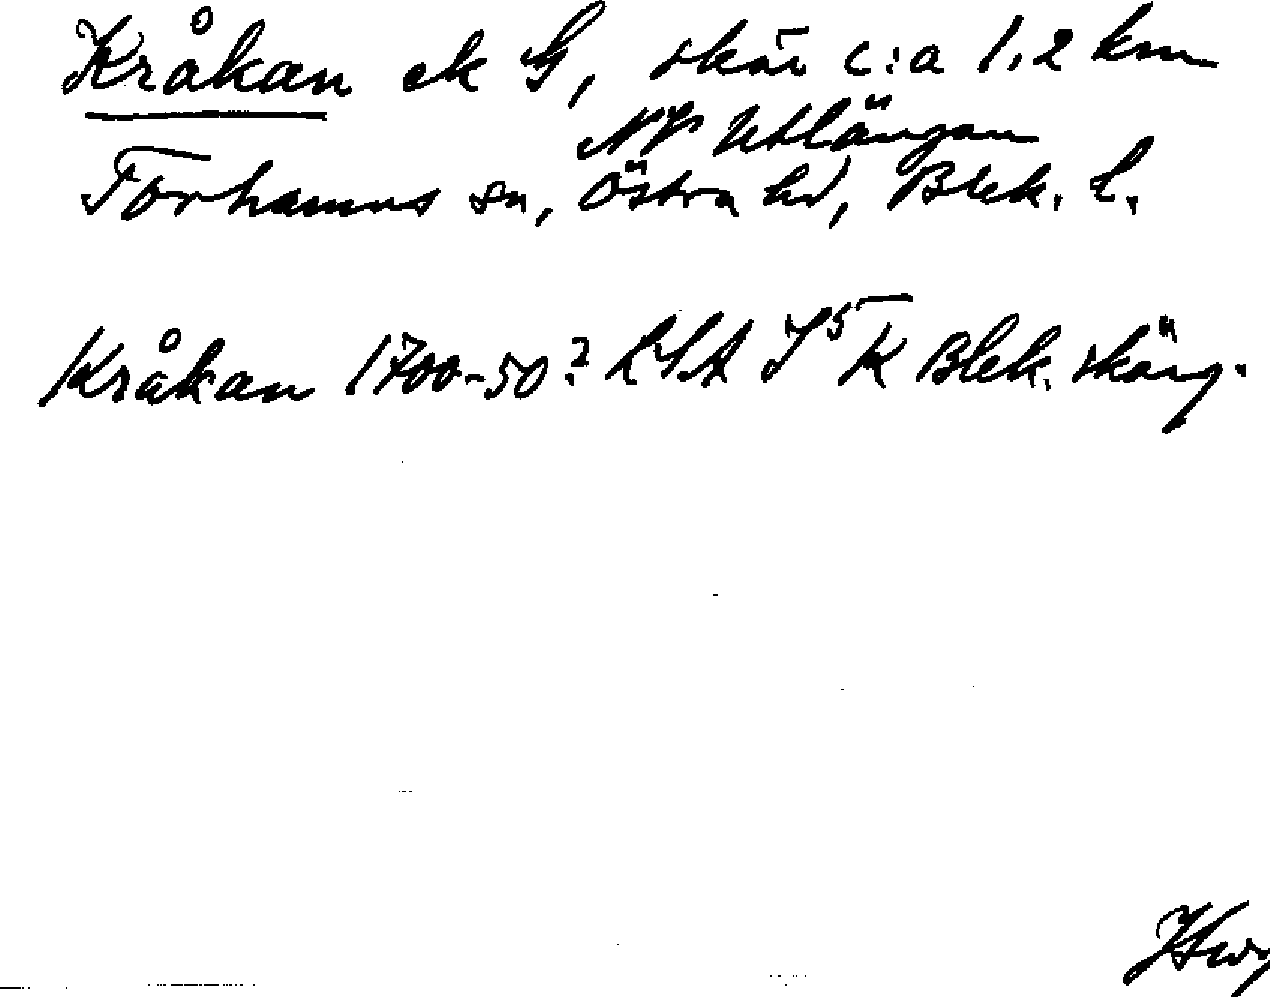 Kråkan ek G, skär c:a 1,2 km
NV Utlängan
Torhamns sn, Östra hd, Blek. l.
Kråkan 1700-50? LSA K Blek. skärg.